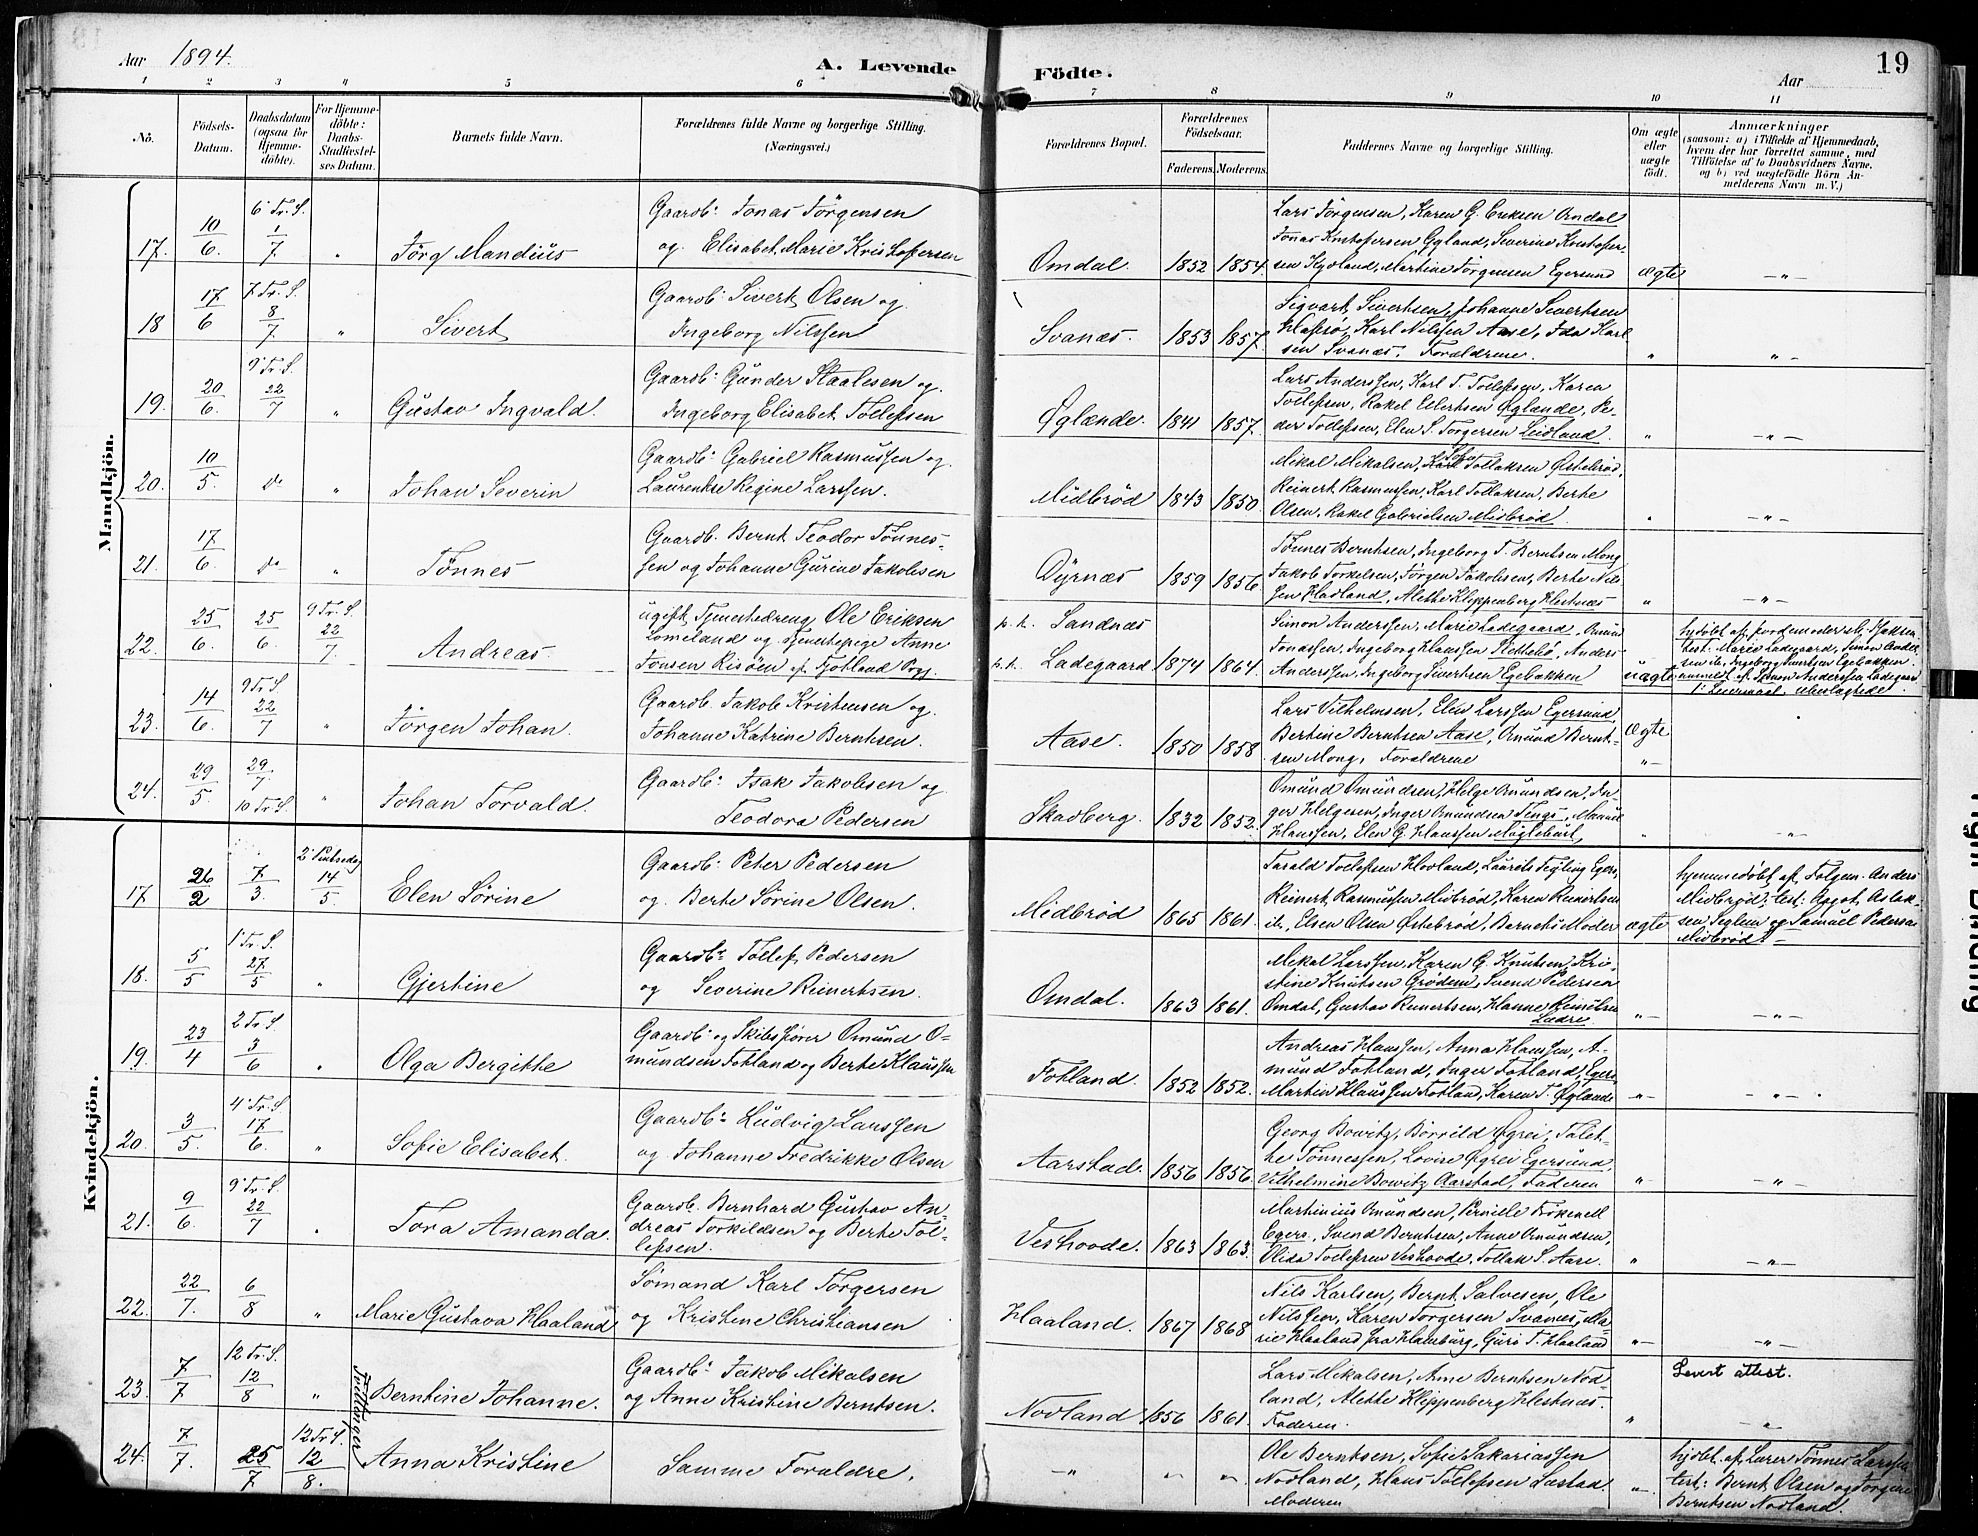 Aar 1894.
A. Levende Födte.
Aar
19
1 2 3 4 5 6 7 8 9 10 11
No.
Födsels-Datum.
Daabsdatum (ogsaa for Hjemme-döbte).
For Hjemme-döbte: Daabs-Stadfæstel-ses Datum.
Barnets fulde Navn.
Forældrenes fulde Navne og borgerlige Stilling. (Næringsvei.)
Forældrenes Bopæl.
Forældrenes Födselsaar.
Faderens. Moderens.
Faddernes Navne og borgerlige Stilling.
Om ægte eller uægte födt.
Anmærkninger
(saasom: a) i Tilfælde af Hjemmedaab,
hvem der har forrettet samme, med
Tilföielse af to Daabsvidners Navne,
og b) ved uægtefödte Börn An-
melderens Navn m. V.)
Mandkjön.
17. 10/6 6' Tr. S. 1/7 " Jörg Mandius
Gaardb: Jonas Jörgensen
og Elisabet Marie Kristofersen
Omdal. 1852 1854
Lars Jörgensen, Karen G. Eriksen Omdal
Jonas Kristofersen Øgland, Severine Kristofer-
sen Hyoland, Martine Jörgensen Egersund
ægte — " —
18 17/6 7 Tr. S. 8/7 " Sivert
Gaardb: Sivert Olsen og
Ingeborg Nilssen
Svanæs. 1853 1857.
Sigvart Sivertsen, Johanne Sivertsen
Karl Nilssen Aase, Ida Karl
sen Svanæs. Forældrene.
" " —
19. 20/6 9' Tr. S. 22/7 " Gustav Ingvald.
Gaardb: Gunder Staalesen og
Ingeborg Elisabet Tollefsen
Øglænde. 1841 1857.
Lars Anderssen, Karl T. Tollefsen, Karen
Tollefsen, Rakel Eilertsen Øglande, Pe-
der Tollefsen, Elen S. Torgersen Leidland.
" — " —
20. 10/5 do " Johan Severin
Gaardb: Gabriel Rasmussen og
Laurentse Regine Larssen.
Midbrød 1843 1850.
Mikal Mikalsen, Tollaksen Østebrød,
Reinert Rasmussen, Karl Tollaksen, Berte
Olsen, Rakel Gabrielsen Midbrød.
" — " —
21. 17/6 do " Tønnes
Gaardb. Bernt Teodor Tønnes-
sen og Johanne Gurine Jakobsen
Dyrnæs 1859 1856
Tønnes Berntsen, Ingeborg T. Berntsen Mong
Jakob Torkelsen, Jørgen Jakobsen, Berte Nils
sen Hadland, Alette Kleppenberg Hestnæs
" — " —
22. 25/6 25/6 9 Tr. S. 22/7. Andreas.
ugift Tjenestedreng Ole Eriksen
Lomeland og tjenestepige Anne
Jonsen Risöen af Fjotland Prgj.
p.t. Sandnæs
p.t. Ladegaard 1874 1864
Simon Anderssen, Marie Ladegaard, Omund
Jonassen, Ingeborg Klaussen Slettebø, Anders
Anderssen, Ingeborg Sivertsen Egebakken
uægte
hjdøbt af Jordemoder
test: Marie Ladegaard, Simon Ander
sen ib. Ingeborg Sivertsen Egebakken.
anmeldt af Simon Anderssen Ladegaard
1' Leiermaal.
23. 14/6 9 Tr. S. 22/7 " Jörgen Johan.
Gaardb. Jakob Kristensen og
Johanne Katrine Berntsen.
Aase. 1850 1858
Lars Vilhelmsen, Elen Larssen Egersund,
Bertine Berntsen Aase, Omund Bernt-
sen Mong, Forældrene
Ægte
" —
24. 29/5 29/7 10 Tr. S. " Johan Torvald.
Gaardb: Isak Jakobsen og
Teodora Pedersen
Skadberg. 1832 1852.
Omund Omundsen, Helge Omundsen, In-
ger Helgesen, Inger Omundsen Tengs,
Klaussen, Elen G. Klaussen Møglebust,
" " —
Kvindekjön.
17 26/2 7/3. 2' Pintsedag 14/5 Elen Sörine
Gaardb: Peter Pedersen
og Berte Sörine Olsen.
Midbrød 1865 1861.
Tarald Tollefsen Hovland, Laurits Egers,
Reinert Rasmussen Midbrød, Karen Reinertsen
ib, Elsen Olsen Østebrød, Barnets Moder
ægte
hjemmedøbt af Anders
Midbrød, test: Aslak-
sen Seglem og Samuel Pedersen
Midbrød. —
18. 5/5 1' Tr. S. 27/5 " Gjertine
Gaardb: Tollef Pedersen
og Severine Reinertsen.
Omdal. 1863 1861.
Mikal Larssen, Karen G. Knutsen, Kri-
stine Knutsen Grødem, Svend Pedersen
Omdal, Gustav Reinertsen, Hanne Reinertsen
Ladre.
" — — " —
19. 23/4 2 Tr. S. 3/6 " Olga Bergitte
Gaardb: og Skibsfører Omund O-
mundsen Fotland og Berte Klaussen
Fotland. 1852 1852.
Andreas Klaussen, Anna Klaussen, A-
mund Fotland, Inger Fotland, Egers,
Martin Klaussen Fotland, Karen T. Øglend
" — — " —
20. 3/5 4' Tr. S. 17/6. " Sofie Elisabet.
Gaardb: Ludvig Larssen
og Johanne Fredrikke Olsen
Aarstad. 1856 1856.
Georg Bowitz, Børrild Øgrei, Talet-
te Tønnessen, Lovise Øgrei Egersund,
Vilhelmine Bowitz Aarstad, Faderen
" — " —
21. 9/6. 9' Tr. S. 22/7 " Tora Amanda.
Gaardb. Bernhard Gustav An-
dreas Torkildsen og Berte Tol-
lefsen.
Veshovde. 1863 1863.
Martinius Omundsen, Pernille
Egers, Svend Berntsen, Anne Omundsen,
Olida Tollefsen Veshovde, Tollak S. Aase.
" — " —
22. 22/7. 6/8 " Marie Gustava Haaland
Sömand Karl Torgersen
og Kristine Christiansen
Haaland. 1867 1868
Nils Karlsen, Bernt Salvesen, Ole
Nilssen, Karen Torgersen Svanæs, Ma-
rie Haaland fra Hamburg, Guri T. Haaland
" — " —
Tvillinger
23. 7/7 12 Tr. S. 12/8 " Berntine Johanne.
Gaardb: Jakob Mikalsen
og Anne Kristine Berntsen.
Nodland 1856 1861.
Lars Mikalsen, Anne Berntsen Nod-
land, Alette Kleppenberg Hestnæs.
Faderen.
" Levert attest. "
24. 7/7. 25/7 12 Tr. S. 12/8. Anna Kristine
Samme Forældre.
— " — " " —
Ole Berntsen, Sofie Sakariassen
Nodland, Hans Tollefsen Læstad.
Moderen
" —
hjdøbt af Lærer Tönnes Larssen
test: Bernt Olsen og Torger
Berntsen Nodland.